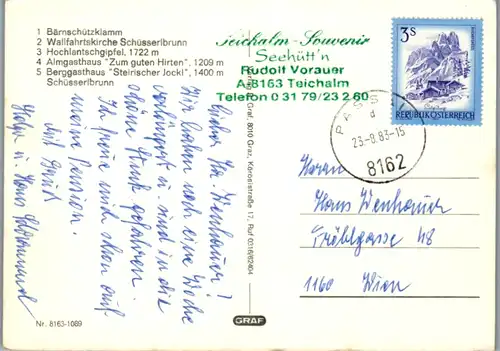 1 Bärnschützklamm
2 Wallfahrtskirche Schüsserlbrunn
3 Hochlantschgipfel, 1722 m
4 Almgasthaus "Zum guten Hirten", 1209 m
5 Berggasthaus "Steirischer Jockl", 1400 m
Schüsserlbrunn
Teichalm-Souvenir
Seehütt'n
Rudolf Vorauer
A-8163 Teichalm
Telefon 0 31 79/23 2 60
3s
REPUBLIK ÖSTERREICH
PASSAIL
d
23.-8.83-15
8162
Lieber Hr. Wenhauer!
Wir haben noch eine Woche
verlängert u. sind in die
schöne gefahren.
Ich freue mich schon auf
meine Pension.
Mit Gruß
u. Hans
Herrn
Hans Wenhauer
Fröbelgasse 48
1160 Wien
Graf, 8010 Graz, Körösistraße 17, Ruf 0316/82404
Nr. 8163-1089
GRAF